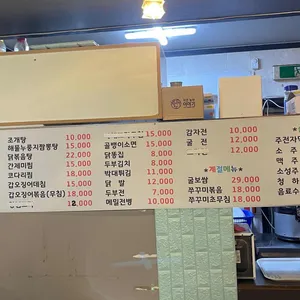 조개탕 10,000
해물누룽지짬뽕탕 15,000
닭볶음탕 22,000
간제미찜 15,000
코다리찜 18,000
갑오징어데침 15,000
갑오징어볶음(무침) 18,000
2,000
15,000
골뱅이소면 15,000
닭똥집 8,000
두부김치 8,000
박대튀김 11,000
닭 발 12,000
두부전 7,000
메밀전병 10,000
감자전 10,000
굴 전 12,000
12,000
*계절메뉴*
굴보쌈 29,000
쭈꾸미볶음 18,000
쭈꾸미초무침 18,000
주전자
소 주
맥 주
소성주
청 하
음료수